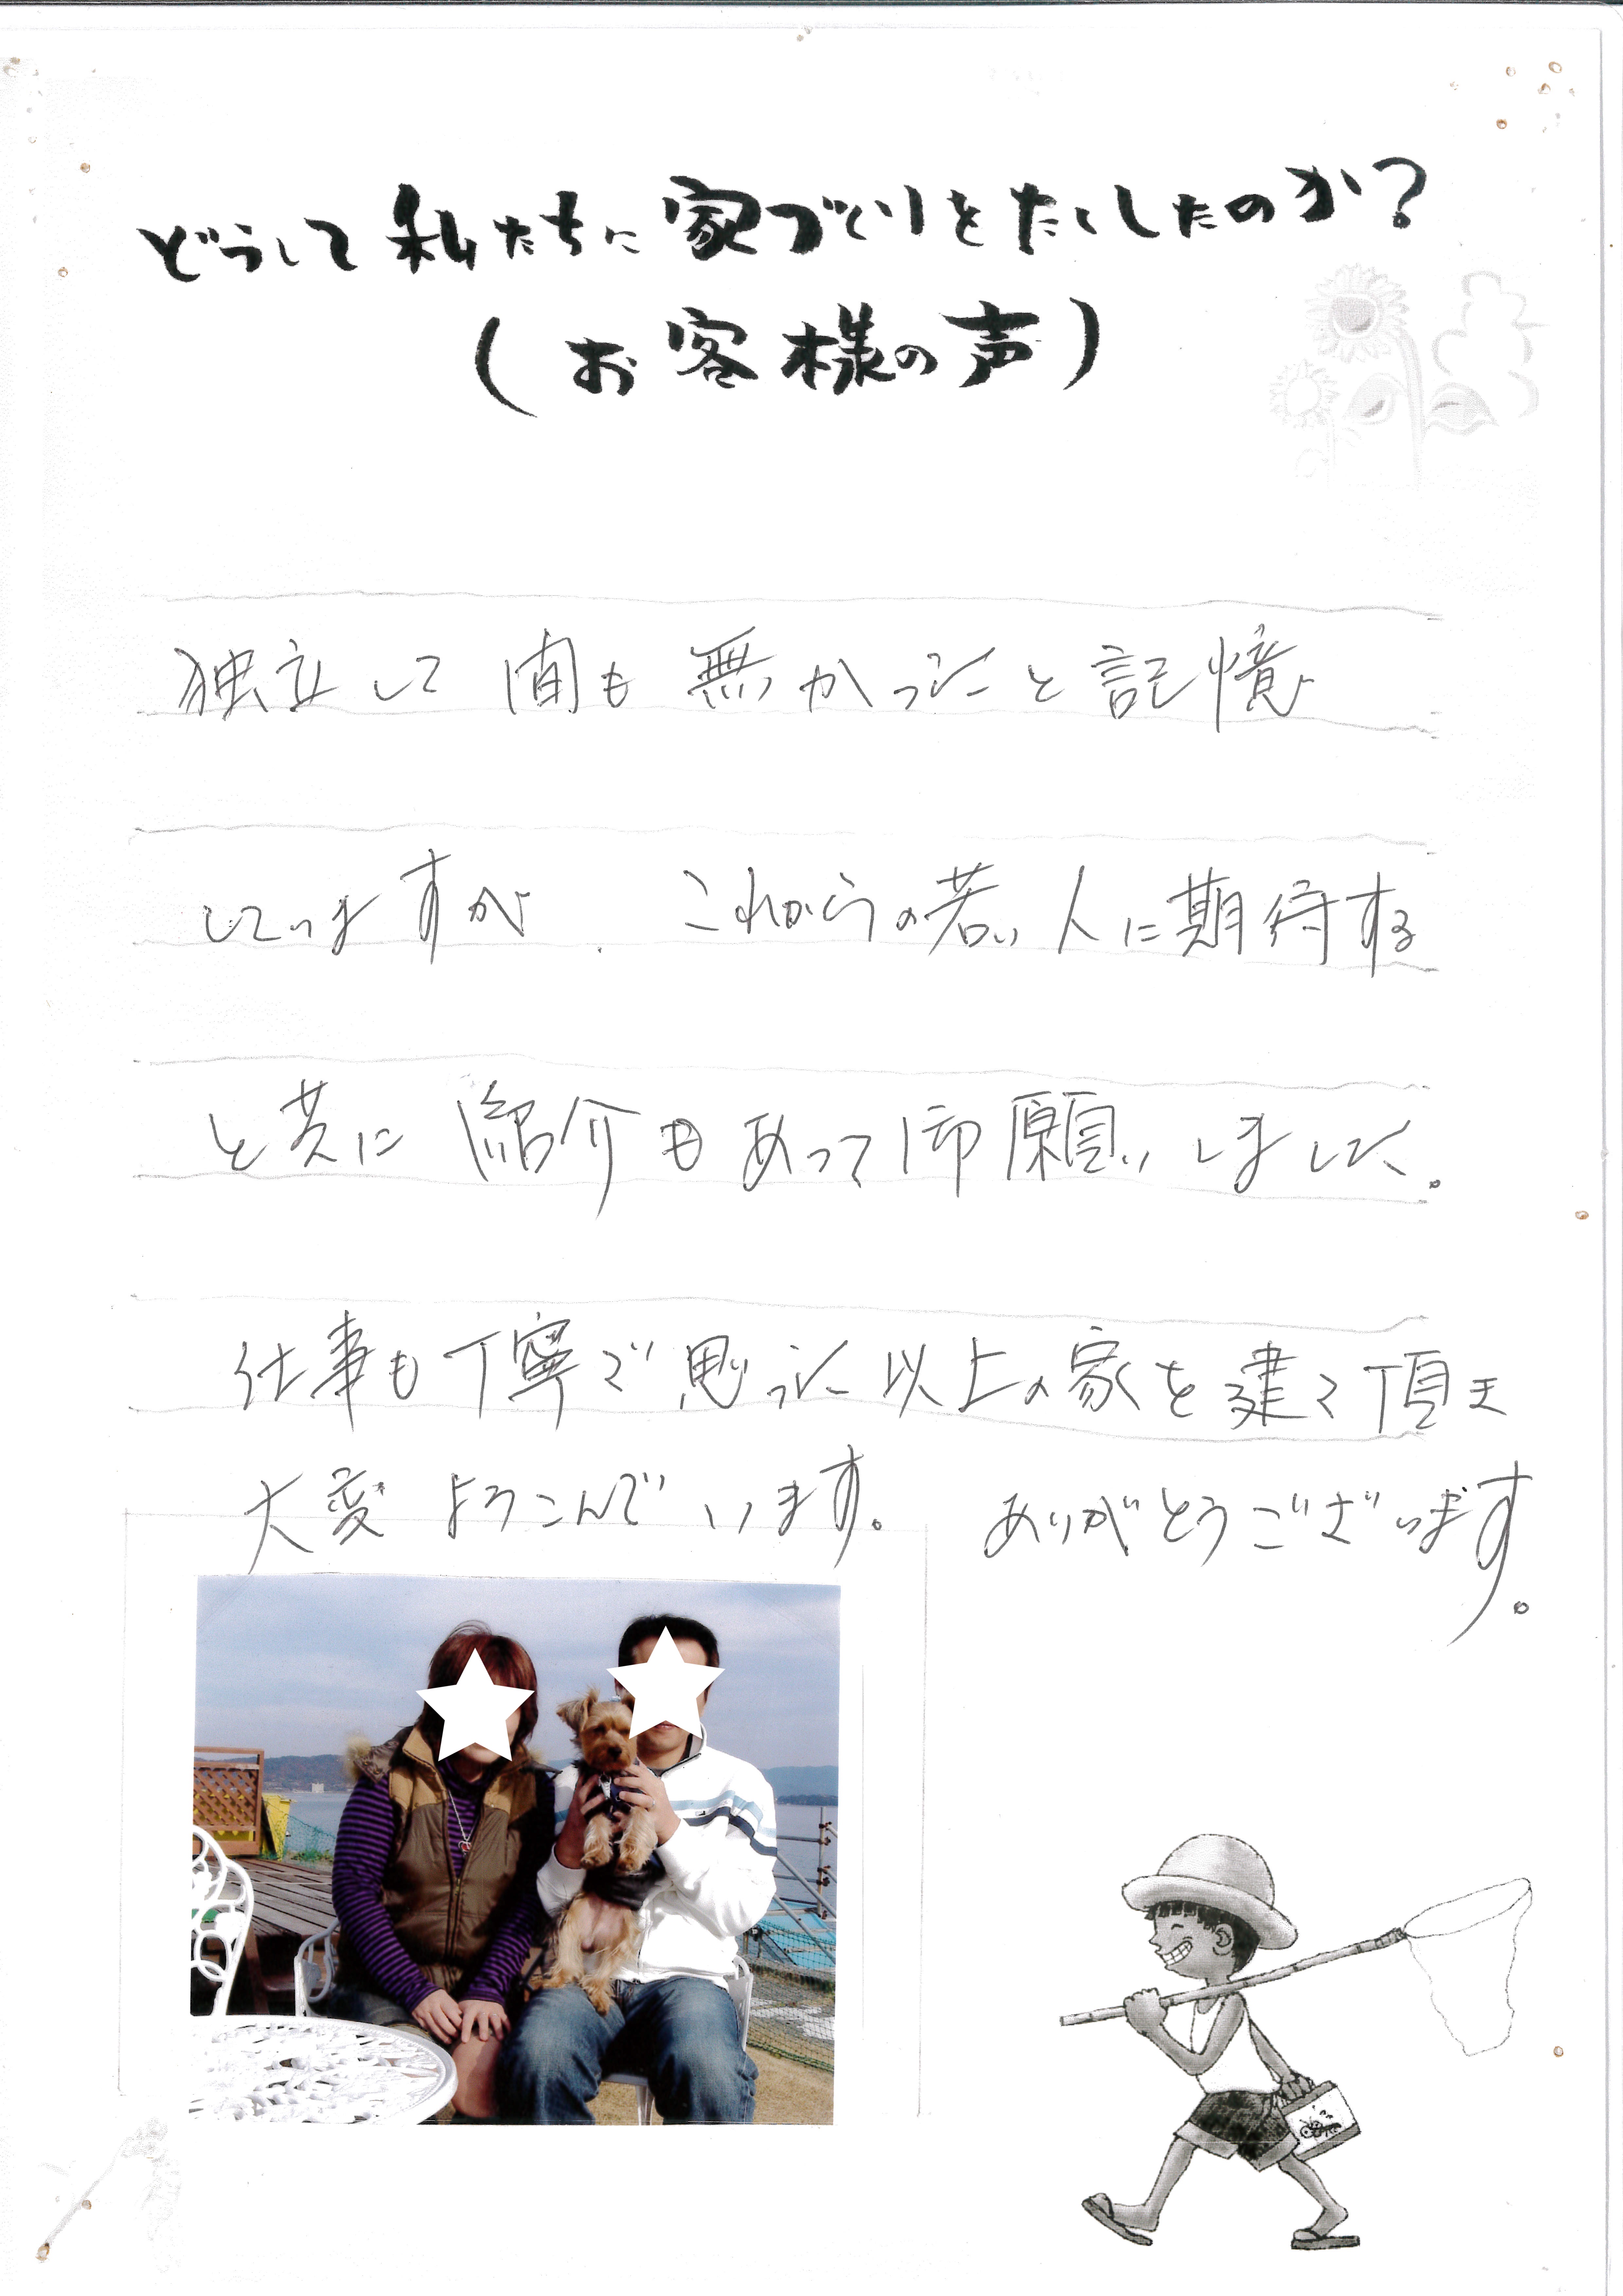 どうして私たちに家づくりをたくしたのか?
(お客様の声)
独立して間も無かったと記憶
していますが、これからの若い人に期待する
と共に紹介もあって御願いしました。
仕事も丁寧で思った以上の家を建て頂き
大変ようこんでいます。ありがとうございます。